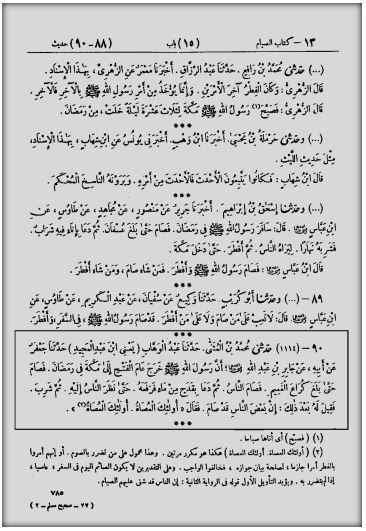 ١٣ - كتاب الصيام (١٥) باب (٨٨-٩٠) حديث
(...) حدثني مُحَمَّدُ بْنُ رَافِعٍ. حَدَّثَنَا عَبْدُ الرَّزَّاقِ. أَخْبَرَنَا مَعْمَرٌ عَنِ الزُّهْرِيِّ، بِهَذَا الْإِسْنَادِ.
قَالَ الزُّهْرِيُّ: وَكَانَ الْفِطْرُ آخِرَ الْأَمْرَيْنِ. وَإِنَّمَا يُؤْخَذُ مِنْ أَمْرِ رَسُولِ اللهِ ﷺ بِالْآخِرِ فَالْآخِرِ.
قَالَ الزُّهْرِيُّ: فَصَبَّحَ(١) رَسُولُ اللهِ ﷺ مَكَّةَ لِثَلَاثَ عَشْرَةَ لَيْلَةً خَلَتْ، مِنْ رَمَضَانَ.
***
(...) وحدثني حَرْمَلَةُ بْنُ يَحْيَى. أَخْبَرَنَا ابْنُ وَهْبٍ. أَخْبَرَنِي يُونُسُ عَنِ ابْنِ شِهَابٍ، بِهَذَا الْإِسْنَادِ،
مِثْلَ حَدِيثِ اللَّيْثِ.
قَالَ ابْنُ شِهَابٍ: فَكَانُوا يَتَّبِعُونَ الْأَحْدَثَ فَالْأَحْدَثَ مِنْ أَمْرِهِ. وَيَرَوْنَهُ النَّاسِخَ الْمُحْكَمَ.
***
(...) وحدثنا إِسْحَقُ بْنُ إِبْرَاهِيمَ. أَخْبَرَنَا جَرِيرٌ عَنْ مَنْصُورٍ، عَنْ مُجَاهِدٍ، عَنْ طَاوُسٍ، عَنِ
ابْنِ عَبَّاسٍ رضي الله عنهما. قَالَ: سَافَرَ رَسُولُ اللهِ ﷺ فِي رَمَضَانَ. فَصَامَ حَتَّى بَلَغَ عُسْفَانَ. ثُمَّ دَعَا بِإِنَاءٍ فِيهِ شَرَابٌ.
فَشَرِبَهُ نَهَارًا. لِيَرَاهُ النَّاسُ. ثُمَّ أَفْطَرَ. حَتَّى دَخَلَ مَكَّةَ.
قَالَ ابْنُ عَبَّاسٍ رضي الله عنهما: فَصَامَ رَسُولُ اللهِ ﷺ وَأَفْطَرَ. فَمَنْ شَاءَ صَامَ، وَمَنْ شَاءَ أَفْطَرَ.
***
٨٩ - (...) وحدثنا أَبُو كُرَيْبٍ. حَدَّثَنَا وَكِيعٌ عَنْ سُفْيَانَ، عَنْ عَبْدِ الْكَرِيمِ، عَنْ طَاوُسٍ، عَنِ
ابْنِ عَبَّاسٍ رضي الله عنهما قَالَ: لَا تَعِبْ عَلَى مَنْ صَامَ وَلَا عَلَى مَنْ أَفْطَرَ. قَدْ صَامَ رَسُولُ اللهِ ﷺ، فِي السَّفَرِ، وَأَفْطَرَ.
***
٩٠ - (١١١٤) حدثني مُحَمَّدُ بْنُ الْمُثَنَّى. حَدَّثَنَا عَبْدُ الْوَهَّابِ (يَعْنِي ابْنَ عَبْدِ الْمَجِيدِ) حَدَّثَنَا جَعْفَرٌ
عَنْ أَبِيهِ، عَنْ جَابِرِ بْنِ عَبْدِ اللهِ رضي الله عنهما؛ أَنَّ رَسُولَ اللهِ ﷺ خَرَجَ عَامَ الْفَتْحِ إِلَى مَكَّةَ فِي رَمَضَانَ. فَصَامَ
حَتَّى بَلَغَ كُرَاعَ الْغَمِيمِ. فَصَامَ النَّاسُ. ثُمَّ دَعَا بِقَدَحٍ مِنْ مَاءٍ فَرَفَعَهُ. حَتَّى نَظَرَ النَّاسُ إِلَيْهِ. ثُمَّ شَرِبَ.
فَقِيلَ لَهُ بَعْدَ ذَلِكَ: إِنَّ بَعْضَ النَّاسِ قَدْ صَامَ. فَقَالَ « أُولَئِكَ الْعُصَاةُ. أُولَئِكَ الْعُصَاةُ(٢) ».
(١) (فصبح) أى أتاها صباحا.
(٢) (أولئك العصاة. أولئك العصاة) هكذا هو مكرر مرتين. وهذا محمول على من تضرر بالصوم. أو إنهم أمروا
بالفطر أمرا جازما، لمصلحة بيان جوازه، فخالفوا الواجب. وعلى التقديرين لا يكون الصائم اليوم فى السفر، عاصيا،
إذا لم يتضرر به. ويؤيد التأويل الأول قوله فى الرواية الثانية: إن الناس قد شق عليهم الصيام.
٧٨٥
(٢٢ - صحيح مسلم - ٢)